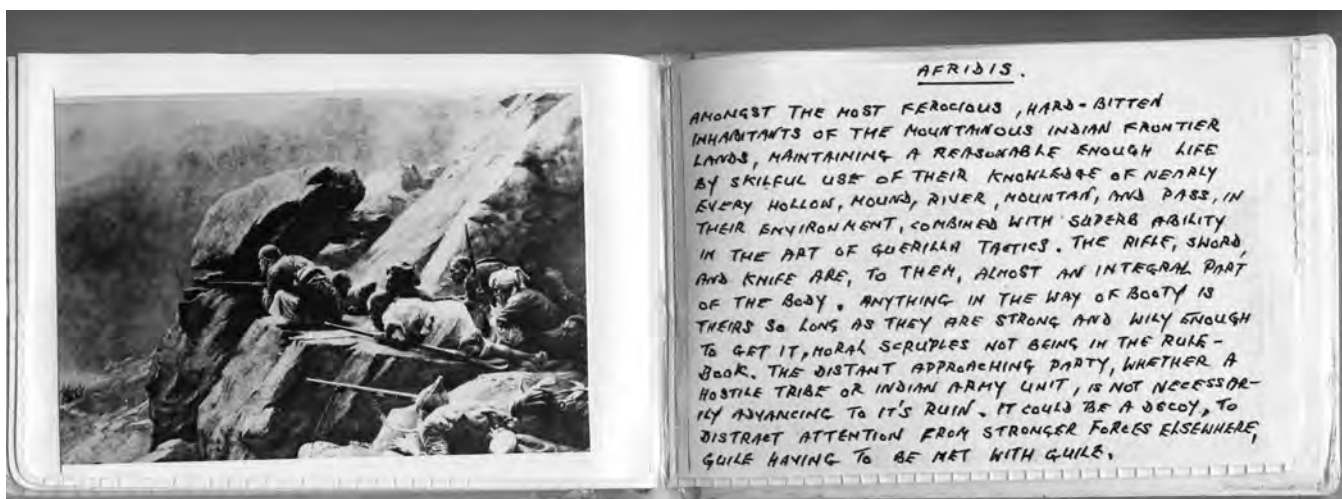 AFRIDIS.
AMONGST THE MOST FEROCIOUS, HARD-BITTEN
INHABITANTS OF THE MOUNTAINOUS INDIAN FRONTIER
LANDS, MAINTAINING A REASONABLE ENOUGH LIFE
BY SKILFUL USE OF THEIR KNOWLEDGE OF NEARLY
EVERY HOLLOW, MOUND, RIVER, MOUNTAN, AND PASS, IN
THEIR ENVIRONMENT, COMBINED WITH SUPERB ABILITY
IN THE ART OF GUERILLA TACTICS. THE RIFLE, SWORD,
AND KNIFE ARE, TO THEM, ALMOST AN INTEGRAL PART
OF THE BODY. ANYTHING IN THE WAY OF BOOTY IS
THEIRS SO LONG AS THEY ARE STRONG AND WILY ENOUGH
TO GET IT, MORAL SCRUPLES NOT BEING IN THE RULE-
BOOK. THE DISTANT APPROACHING PARTY, WHETHER A
HOSTILE TRIBE OR INDIAN ARMY UNIT, IS NOT NECESSAR-
ILY ADVANCING TO IT'S RUIN. IT COULD BE A DECOY, TO
DISTRACT ATTENTION FROM STRONGER FORCES ELSEWHERE,
GUILE HAVING TO BE MET WITH GUILE.